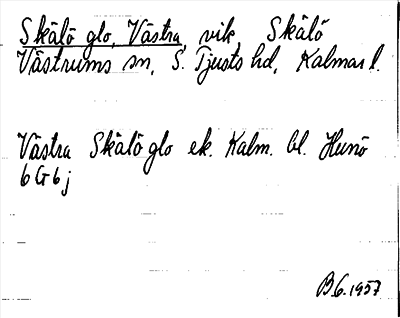 Skälö glo, Västra, vik, Skälö
Västrums sn, S. Tjusts hd, Kalmar l.
Västra Skälö glo ek. Kalm. bl. Hunö
6G6j
B6.1957